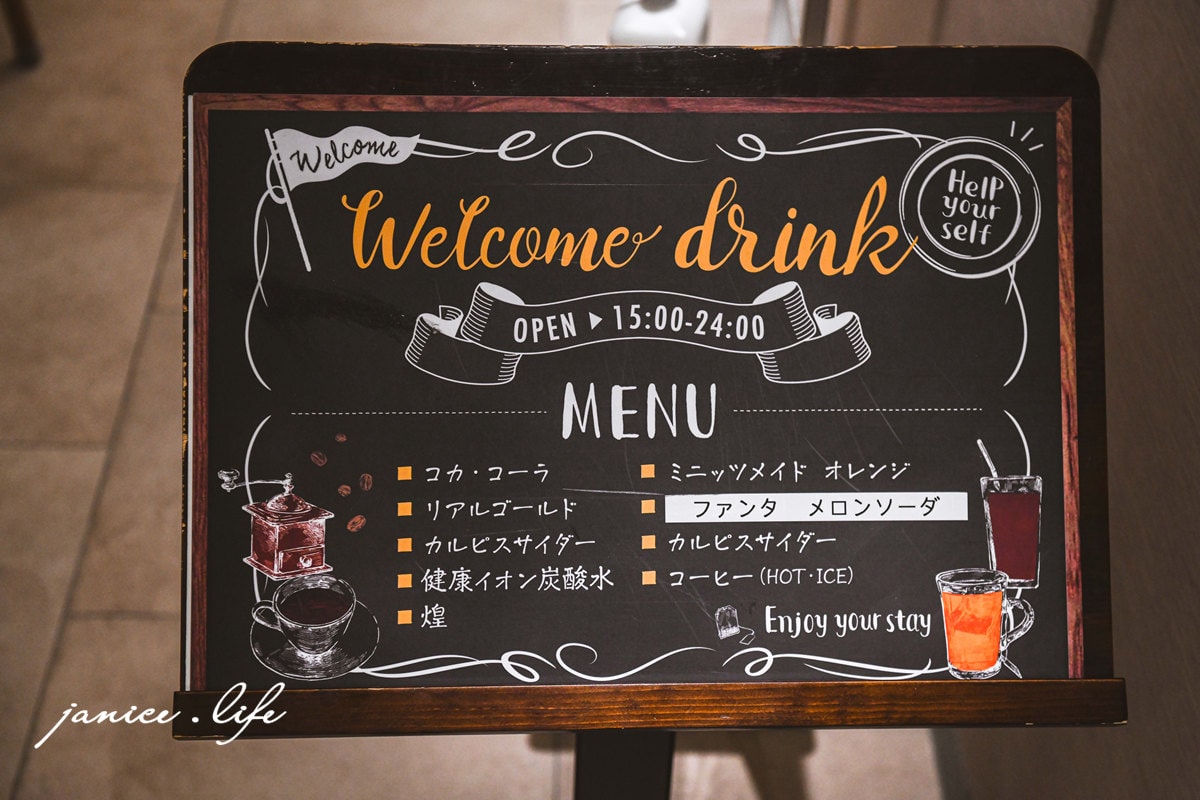 Welcome
Welcome drink
Help
your
self
OPEN ▶ 15:00-24:00
MENU
■ コカ・コーラ
■ リアルゴールド
■ カルピスサイダー
■ 健康イオン炭酸水
■ 煌
■ ミニッツメイド オレンジ
■ ファンタ メロンソーダ
■ カルピスサイダー
■ コーヒー(HOT・ICE)
Enjoy your stay
janice.life